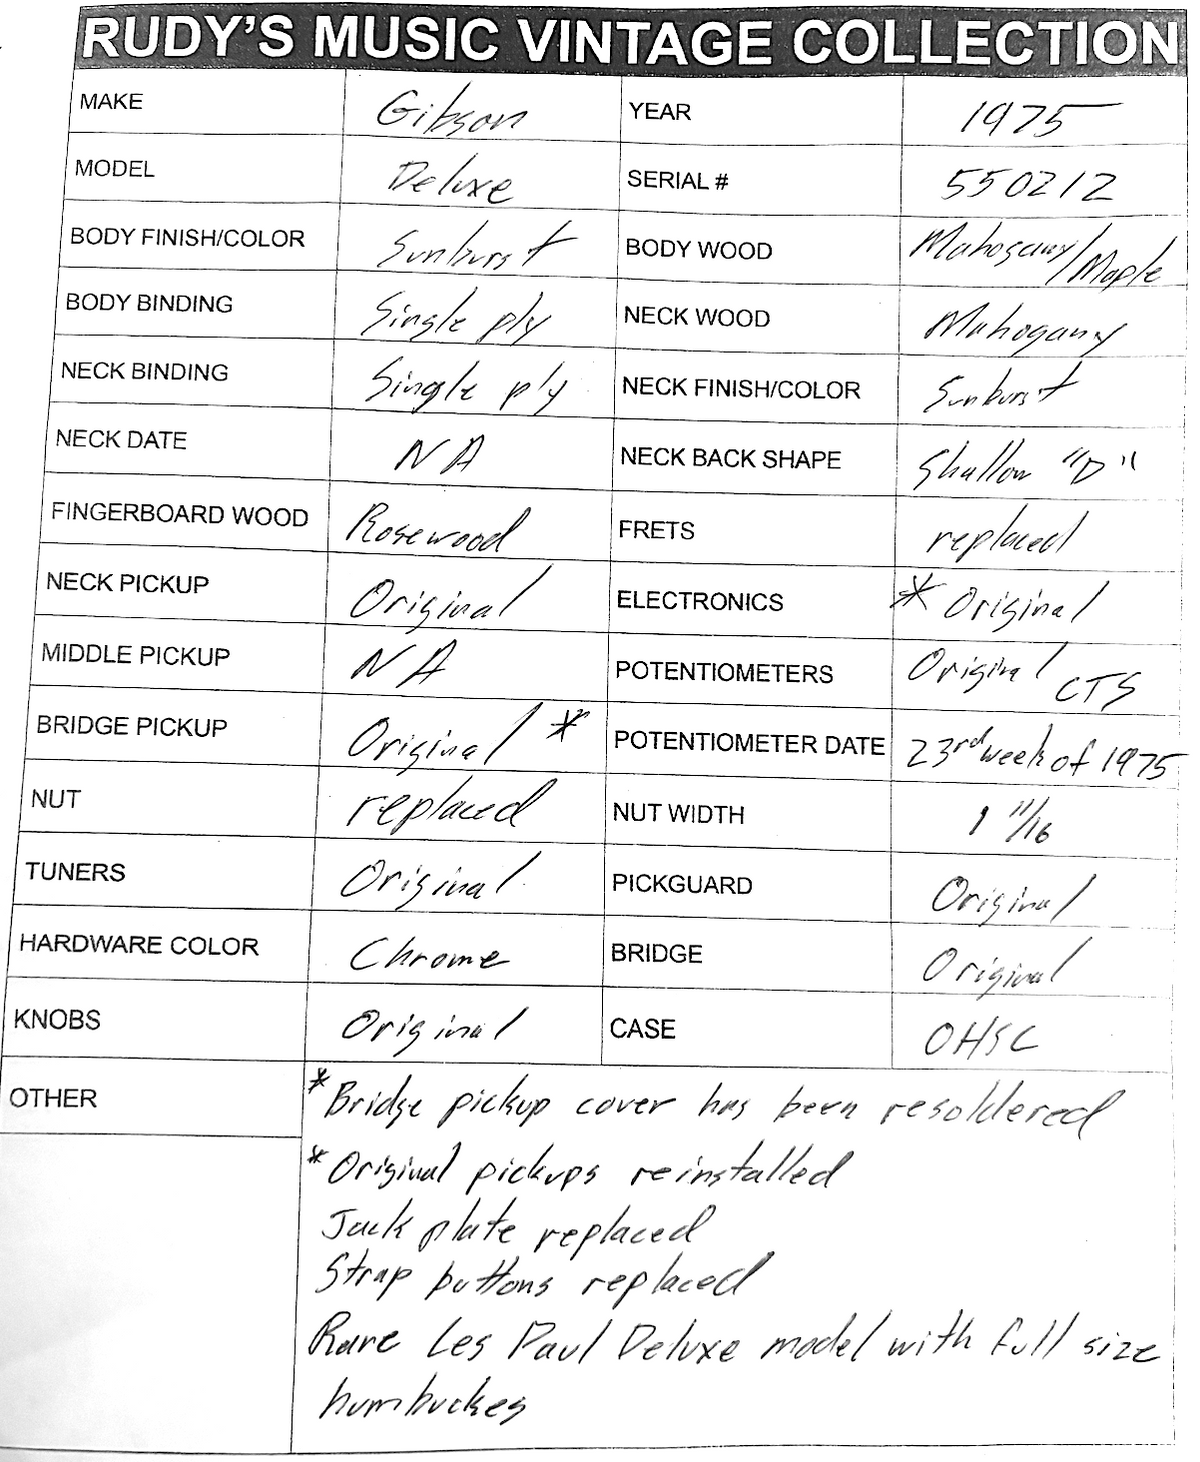 RUDY'S MUSIC VINTAGE COLLECTION
MAKE Gibson YEAR 1975
MODEL Deluxe SERIAL # 550212
BODY FINISH/COLOR Sunburst BODY WOOD Mahogany/Maple
BODY BINDING Single ply NECK WOOD Mahogany
NECK BINDING Single ply NECK FINISH/COLOR Sunburst
NECK DATE NA NECK BACK SHAPE Shallow "D"
FINGERBOARD WOOD Rosewood FRETS replaced
NECK PICKUP Original ELECTRONICS * Original
MIDDLE PICKUP NA POTENTIOMETERS Original CTS
BRIDGE PICKUP Original * POTENTIOMETER DATE 23rd week of 1975
NUT replaced NUT WIDTH 1 11/16
TUNERS Original PICKGUARD Original
HARDWARE COLOR Chrome BRIDGE Original
KNOBS Original CASE OHSC
OTHER *Bridge pickup cover has been resoldered
*Original pickups reinstalled
Jack plate replaced
Strap buttons replaced
Rare Les Paul Deluxe model with full size
humbuckes